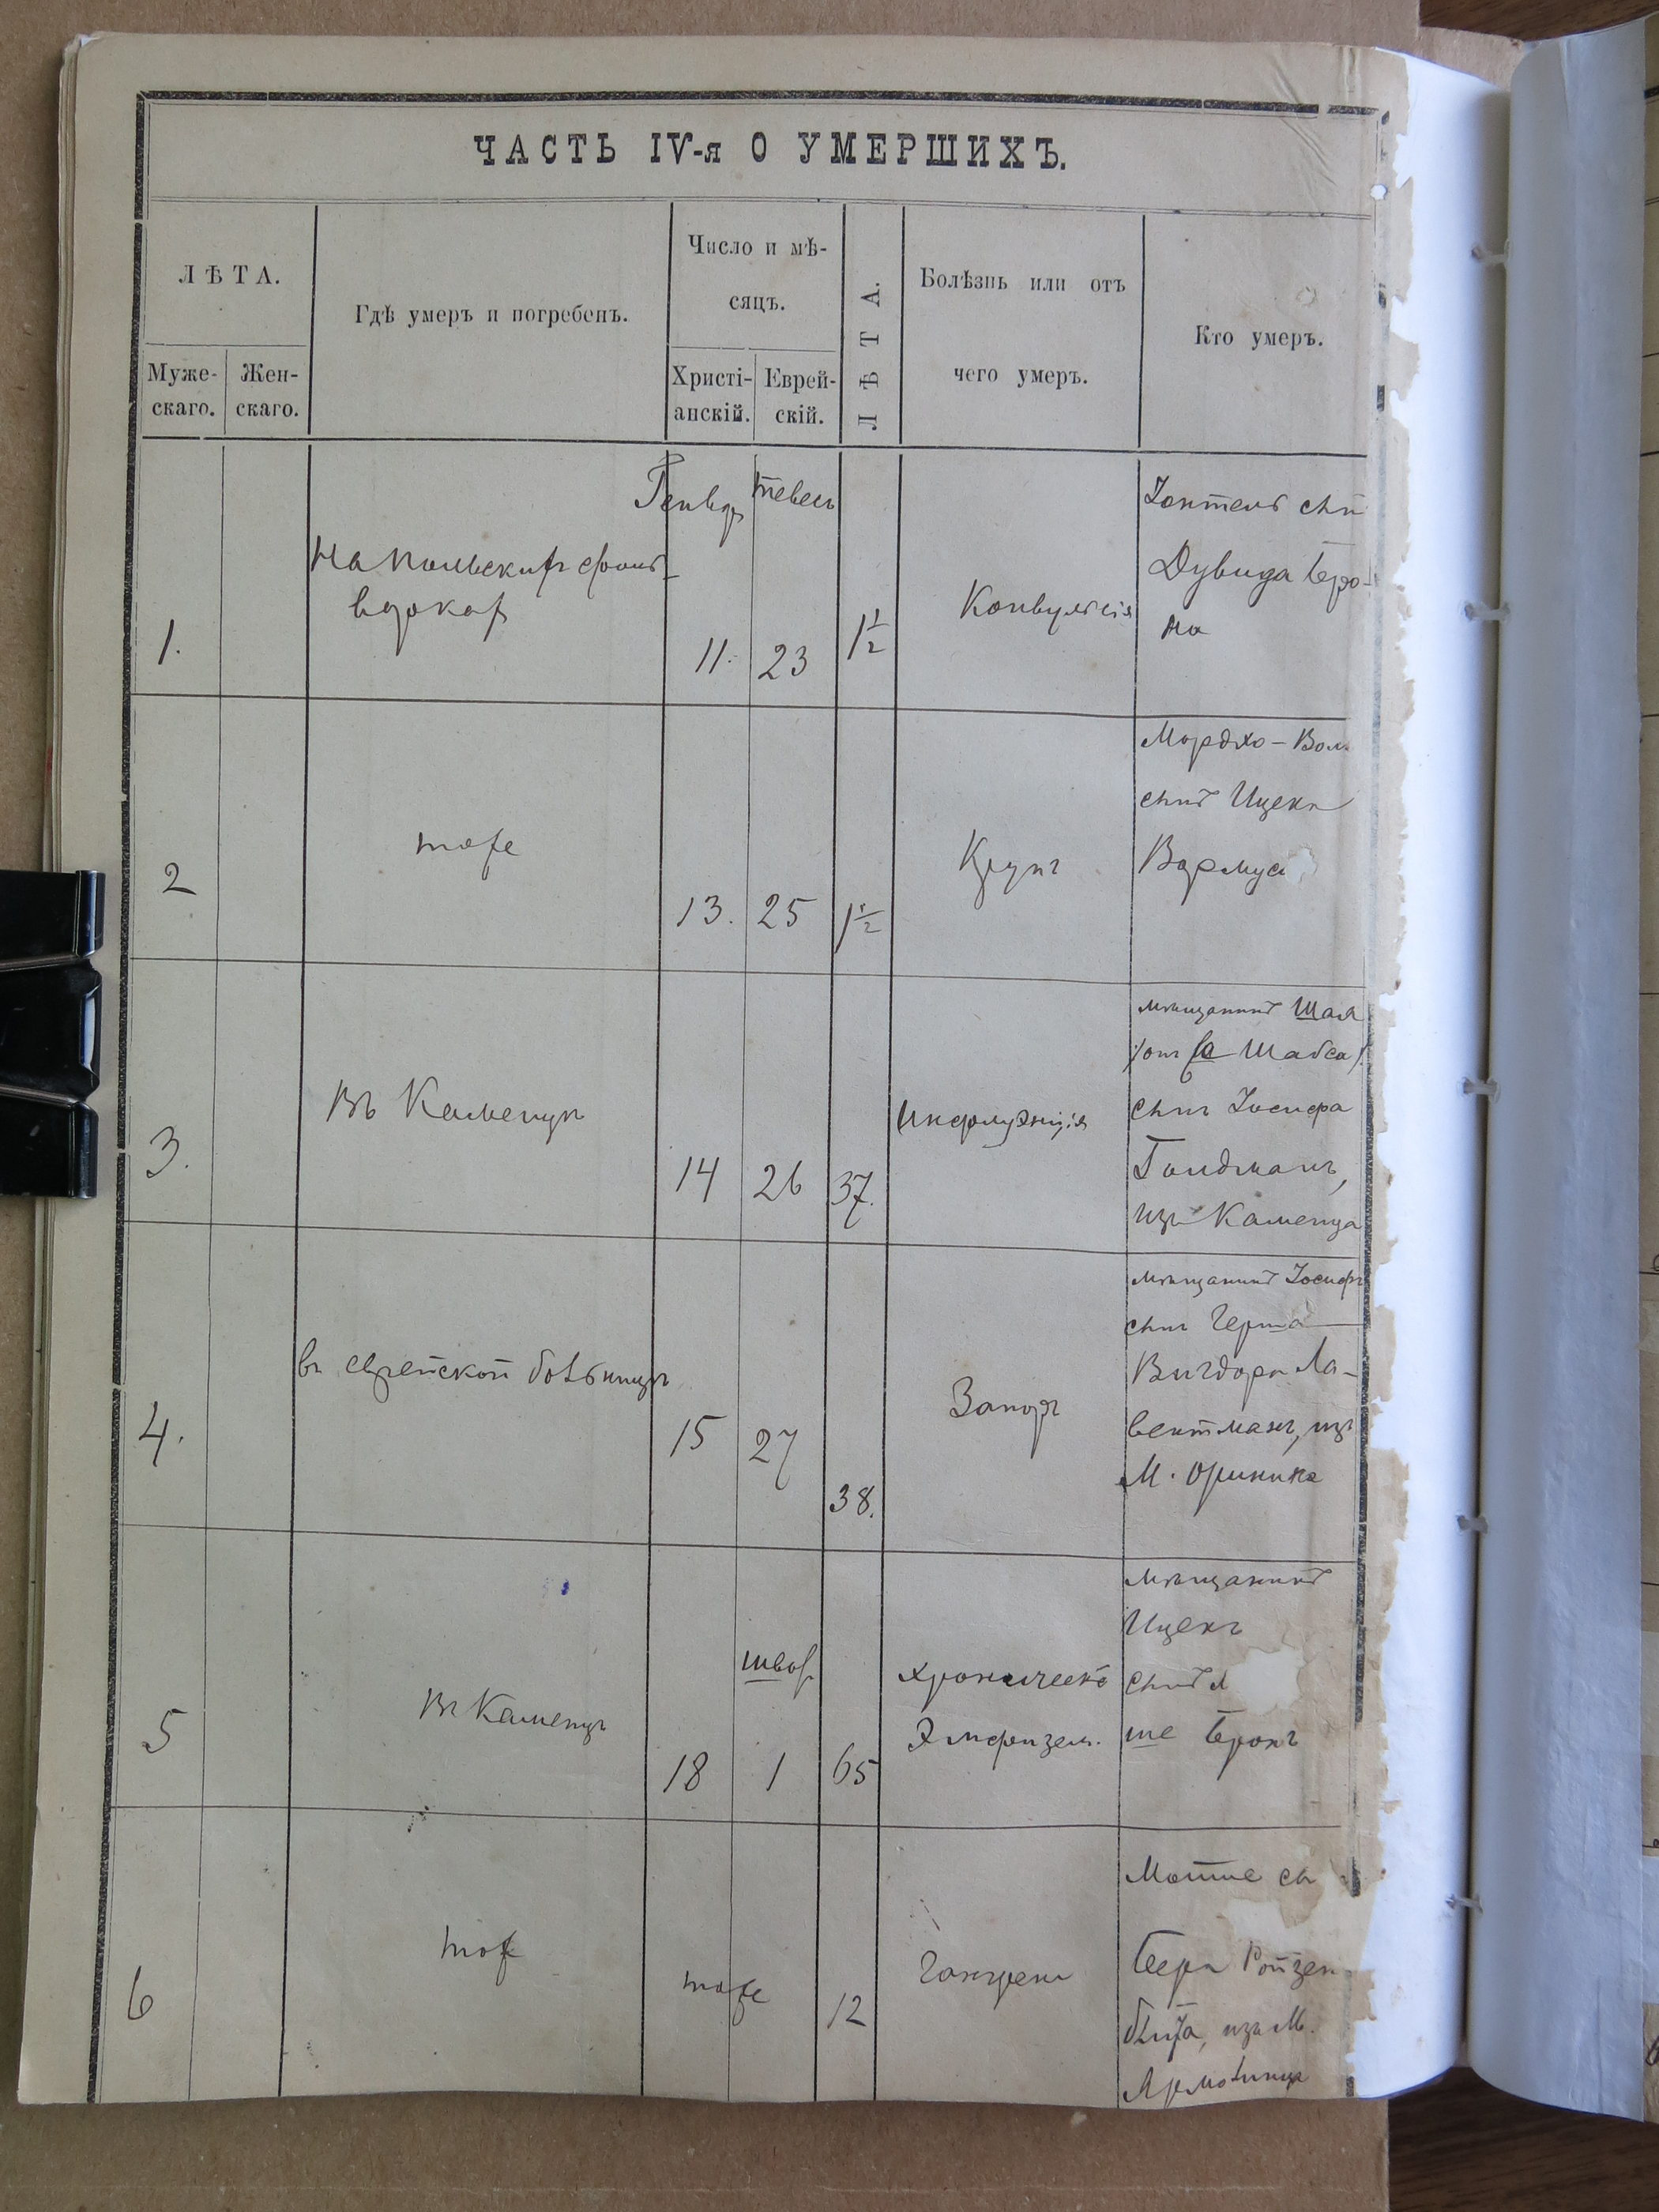 ЧАСТЬ IV-я О УМЕРШИХЪ.
ЛѢТА.
Муже-
скаго.
Жен-
скаго.
Гдѣ умеръ и погребенъ.
Число и мѣ-
сяцъ.
Христі-
анскій.
Еврей-
скій.
ЛѢТА.
Болѣзнь или отъ
чего умеръ.
Кто умеръ.
1.
На польскихъ фоль-
варкахъ
Генвар
тевесъ
11.
23
1½
Конвульсія
сынъ
Дувида Беро-
на
2
тоже
13.
25
1½
Крупъ
Мордхо-Вол
сынъ Ицека
Вармуса
3.
Въ Каменцѣ
14
26
37.
Инфлуэнція
мѣщанинъ Шая
Шабса
сынъ Іосифа
Голдманъ,
изъ Каменца
4.
въ еврейской больницѣ
15
27
38.
Запоръ
мѣщанинъ Іосифъ
сынъ Герша
Вигдора Ла-
вентманъ, изъ
М. Оринина
5
Въ Каменцѣ
18
шват
1
65
хроническа
Эмфизема
мѣщанинъ
Ицекъ
сынъ М
ше Беронъ
6
тоже
тоже
12
Гангрена
Мотие сы
Бера Ройзен
блита, изъ М.
Ярмолинца